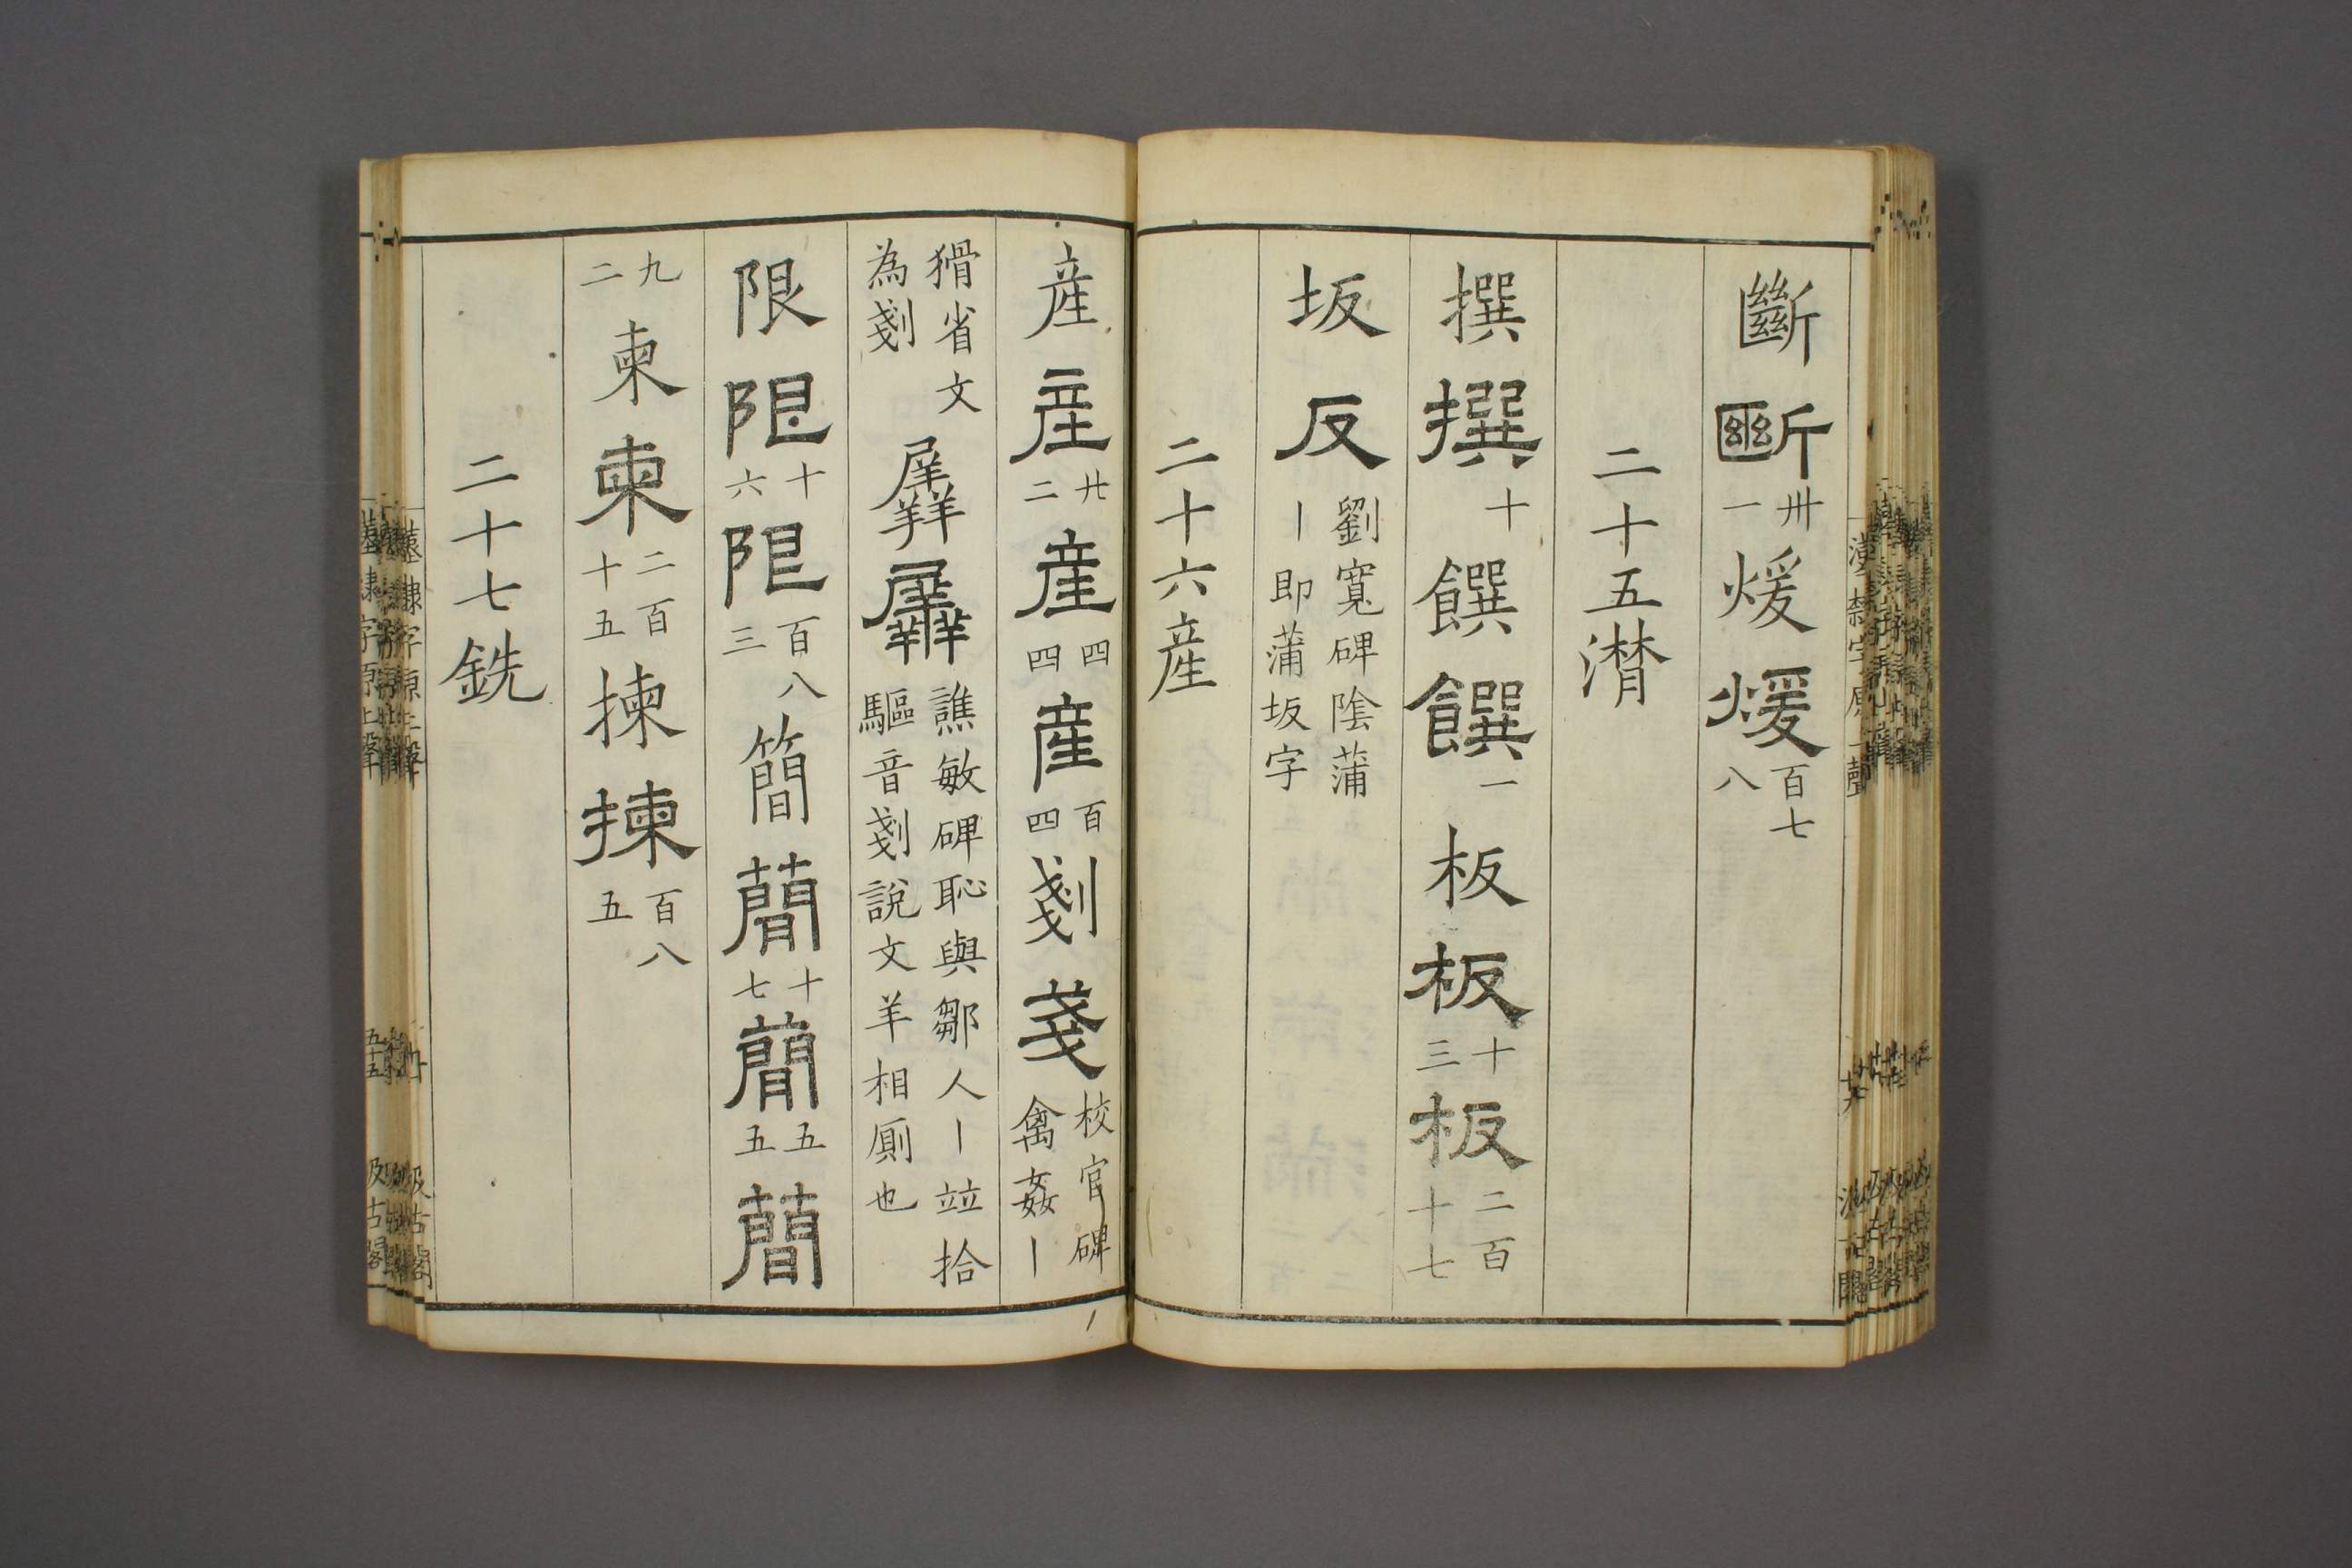 斷斷卅一煖煖百七八
二十五潸
撰撰十饌饌一板板十三板二百十七
坂反劉寬碑陰蒲丨即蒲坂字
二十六産
産産廿二産四四産百四剗㦮校官碑禽姦丨
猾省文為剗羼羼譙敏碑恥與鄒人丨竝拾驅音剗說文羊相厠也
限限十六限百八三簡蕳十七蕳五五蕳
九二柬柬二百十五揀揀百八五
二十七銑
漢隷字原上聲
五十五
汲古閣